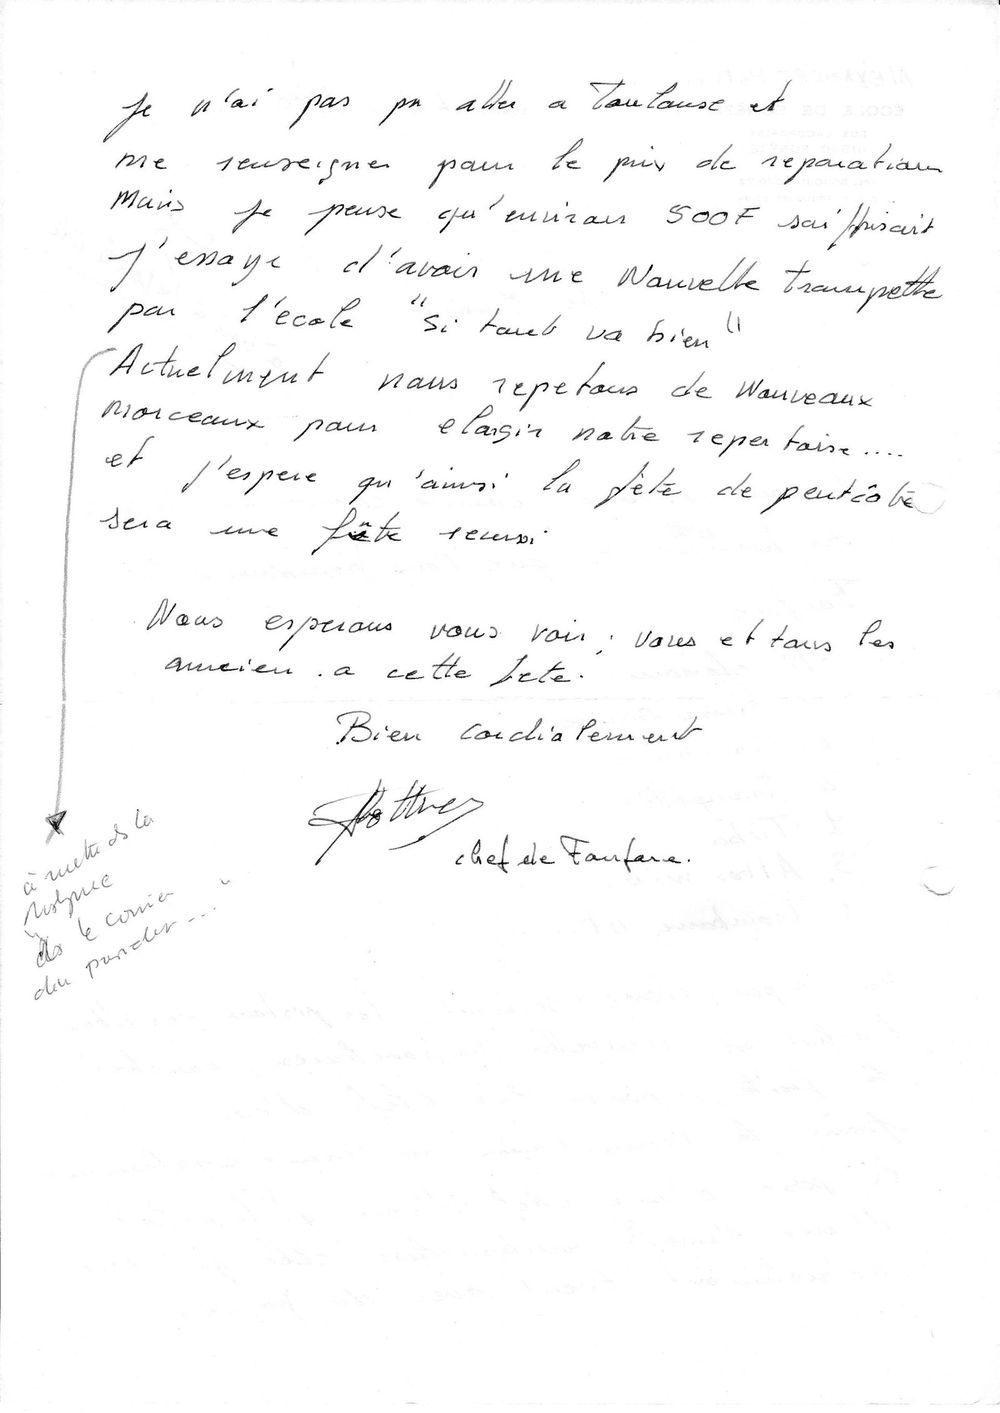 Je n'ai pas pu aller a Toulouse et
me renseigner pour le prix de reparation
Mais je pense qu'environ 500F suffisait
J'essaye d'avoir une Nouvelle trompette
par l'école "Si tout va bien"
Actuelment nous repetons de Nouveaux
morceaux pour elargir notre repertoire....
et j'espere qu'ainsi la fête de pentcôte
sera une fête reussi
Nous esperons vous voir, vous et tous les
ancien a cette fete.
Bien cordialement
chef de Fanfare.
à mettre ds la
ds le courrier
du